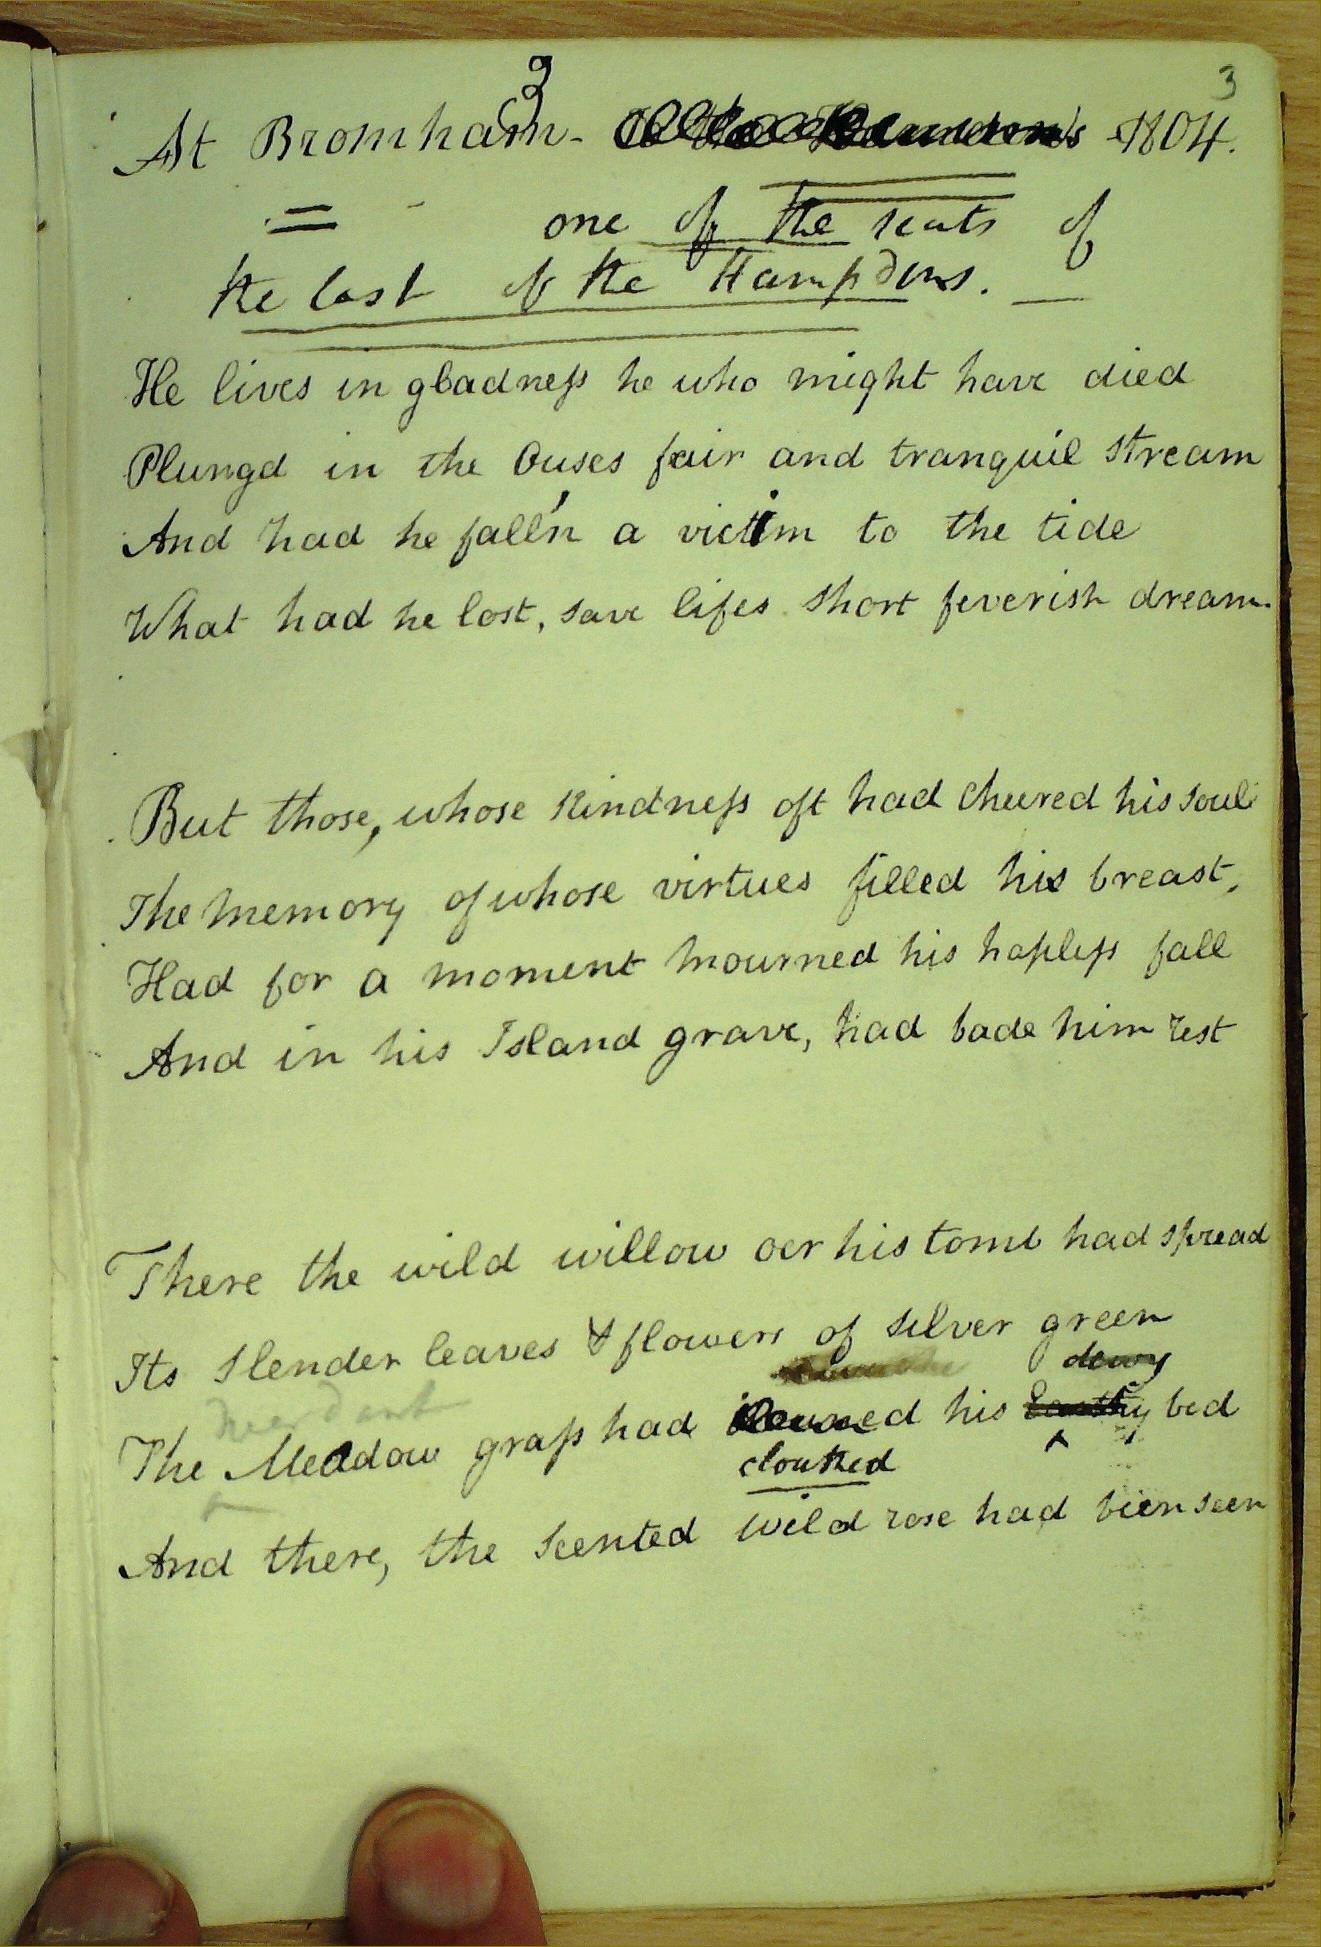 3
3
At Bromham - 1804.
= - one of the seats of
the last of the Hampdens. —
He lives in gladneſs he who might have died
Plungd in the Ouses fair and tranquil stream
And had he fall'n a victim to the tide
What had he lost, save lifes short feverish dream.
But those, whose kindneſs oft had cheered his soul
The memory of whose virtues filled his breast,
Had for a moment mourned his hapleſs fall
And in his Island grave, had bade him rest
There the wild willow oer his tomb had spread
Its slender leaves & flowers of silver green
dewy
The Meadow graſs had his Earthy bed
clothed
And there, the scented wild rose had bien seen